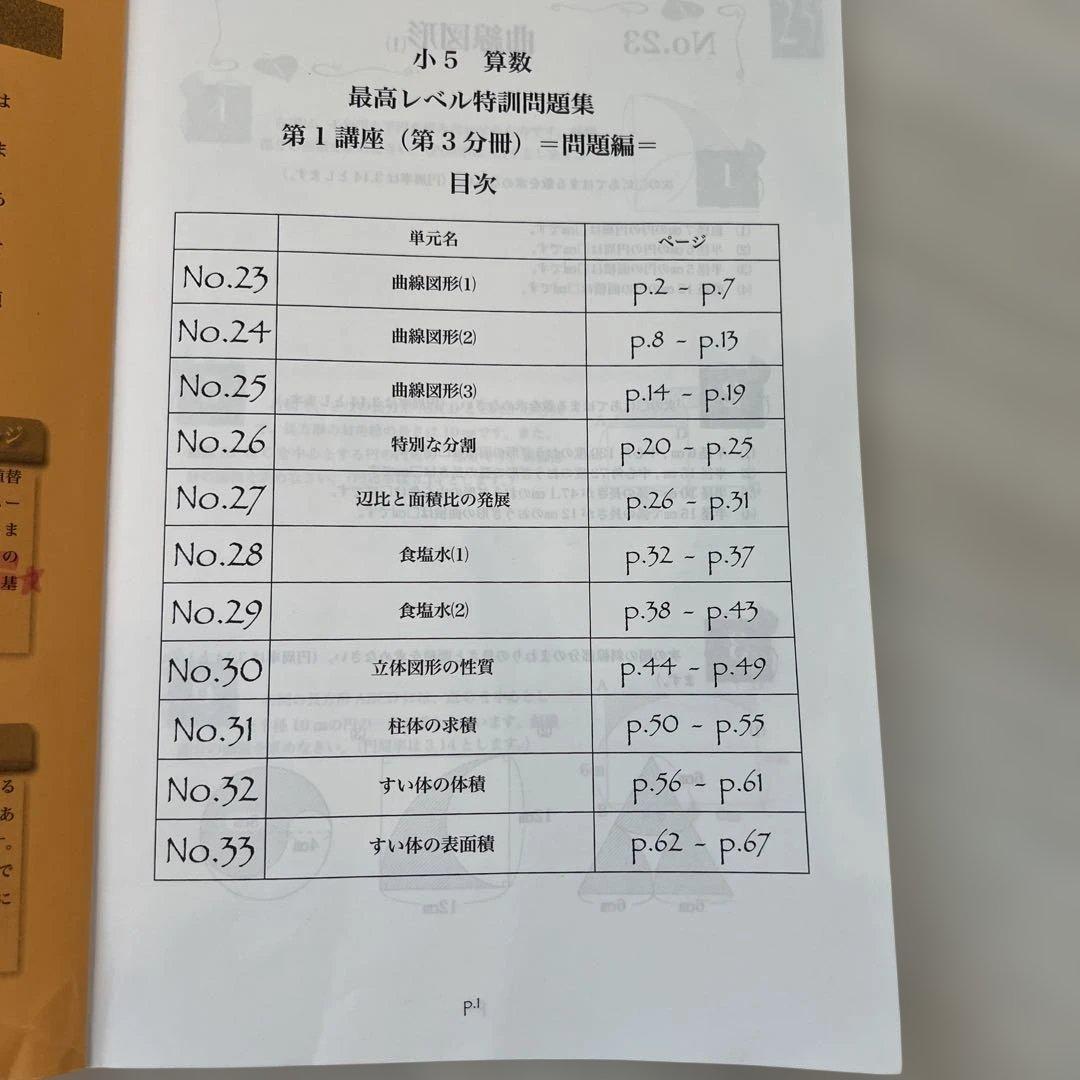 小5 算数
最高レベル特訓問題集
第1講座（第3分冊）＝問題編＝
目次
単元名 ページ
No.23 曲線図形(1) p.2 - p.7
No.24 曲線図形(2) p.8 - p.13
No.25 曲線図形(3) p.14 - p.19
No.26 特別な分割 p.20 - p.25
No.27 辺比と面積比の発展 p.26 - p.31
No.28 食塩水(1) p.32 - p.37
No.29 食塩水(2) p.38 - p.43
No.30 立体図形の性質 p.44 - p.49
No.31 柱体の求積 p.50 - p.55
No.32 すい体の体積 p.56 - p.61
No.33 すい体の表面積 p.62 - p.67
p.1